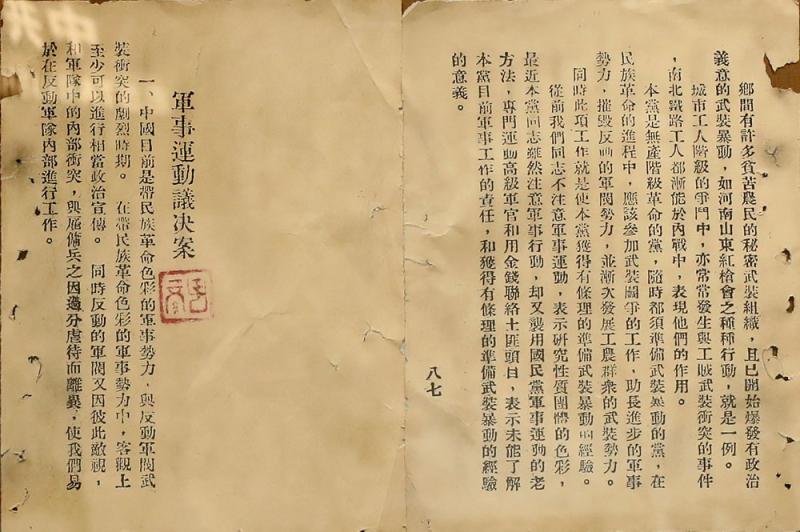 鄉間有許多貧苦農民的秘密武裝組織，且已開始爆發有政治
義意的武裝暴動，如河南山東紅槍會之種種行動，就是一例。
城市工人階級的爭鬥中，亦常常發生與工賊武裝衝突的事件
，南北鐵路工人都漸能於內戰中，表現他們的作用。
本黨是無產階級革命的黨，隨時都須準備武裝暴動的黨，在
民族革命的進程中，應該參加武裝鬭爭的工作，助長進步的軍事
勢力，摧毀反動的軍閥勢力，並漸次發展工農群衆的武裝勢力。
同時此項工作就是使本黨獲得有條理的準備武裝暴動的經驗。
從前我們同志不注意軍事運動，表示研究性質團體的色彩，
最近本黨同志雖然注意軍事行動，却又襲用國民黨軍事運動的老
方法，專門運動高級軍官和用金錢聯絡土匪頭目，表示未能了解
本黨目前軍事工作的責任，和獲得有條理的準備武裝暴動的經驗
的意義。
八七
軍事運動議决案
一、中國目前是帶民族革命色彩的軍事勢力，與反動軍閥武
裝衝突的劇烈時期。在帶民族革命色彩的軍事勢力中，客觀上
至少可以進行相當政治宣傳。同時反動的軍閥又因彼此敵視，
和軍隊中的內部衝突，與雇傭兵之因過分虐待而離異，使我們易
於在反動軍隊內部進行工作。